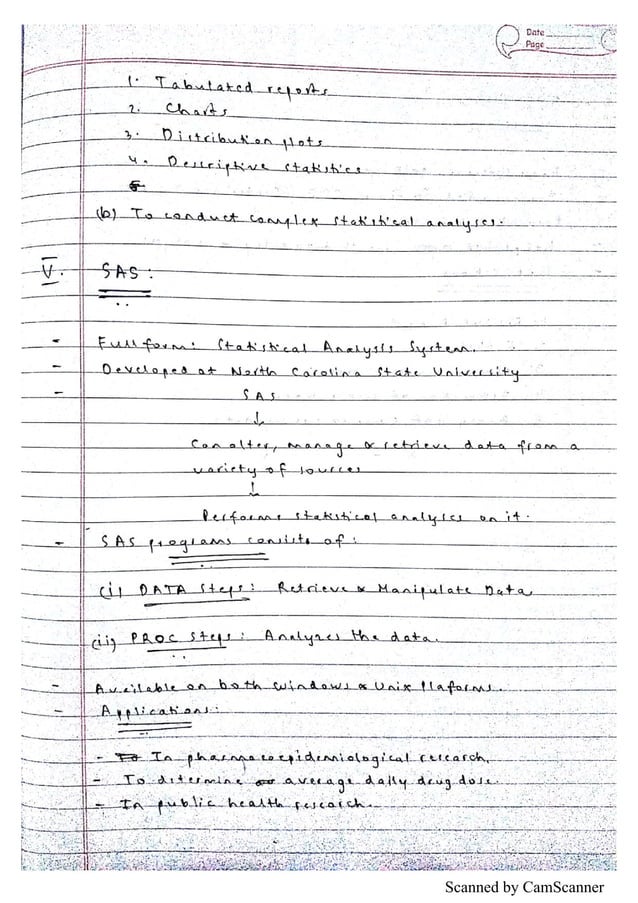 Date
Page
1. Tabulated reports
2. Charts
3. Distribution plots
4. Descriptive statistics
5
(b) To conduct complex statistical analyses.
V. SAS :
- Full form: Statistical Analysis System.
- Developed at North Carolina State University
- SAS
↓
Can alter, manage & retrieve data from a
variety of sources
↓
Performs statistical analyses on it.
- SAS programs consists of :
(i) DATA Steps : Retrieve & Manipulate Data
(ii) PROC Steps : Analyzes the data.
- Available on both windows & Unix Plaforms.
- Applications :
- To In pharmacoepidemiological research.
- To determine average daily drug dose.
- In public health research.
Scanned by CamScanner